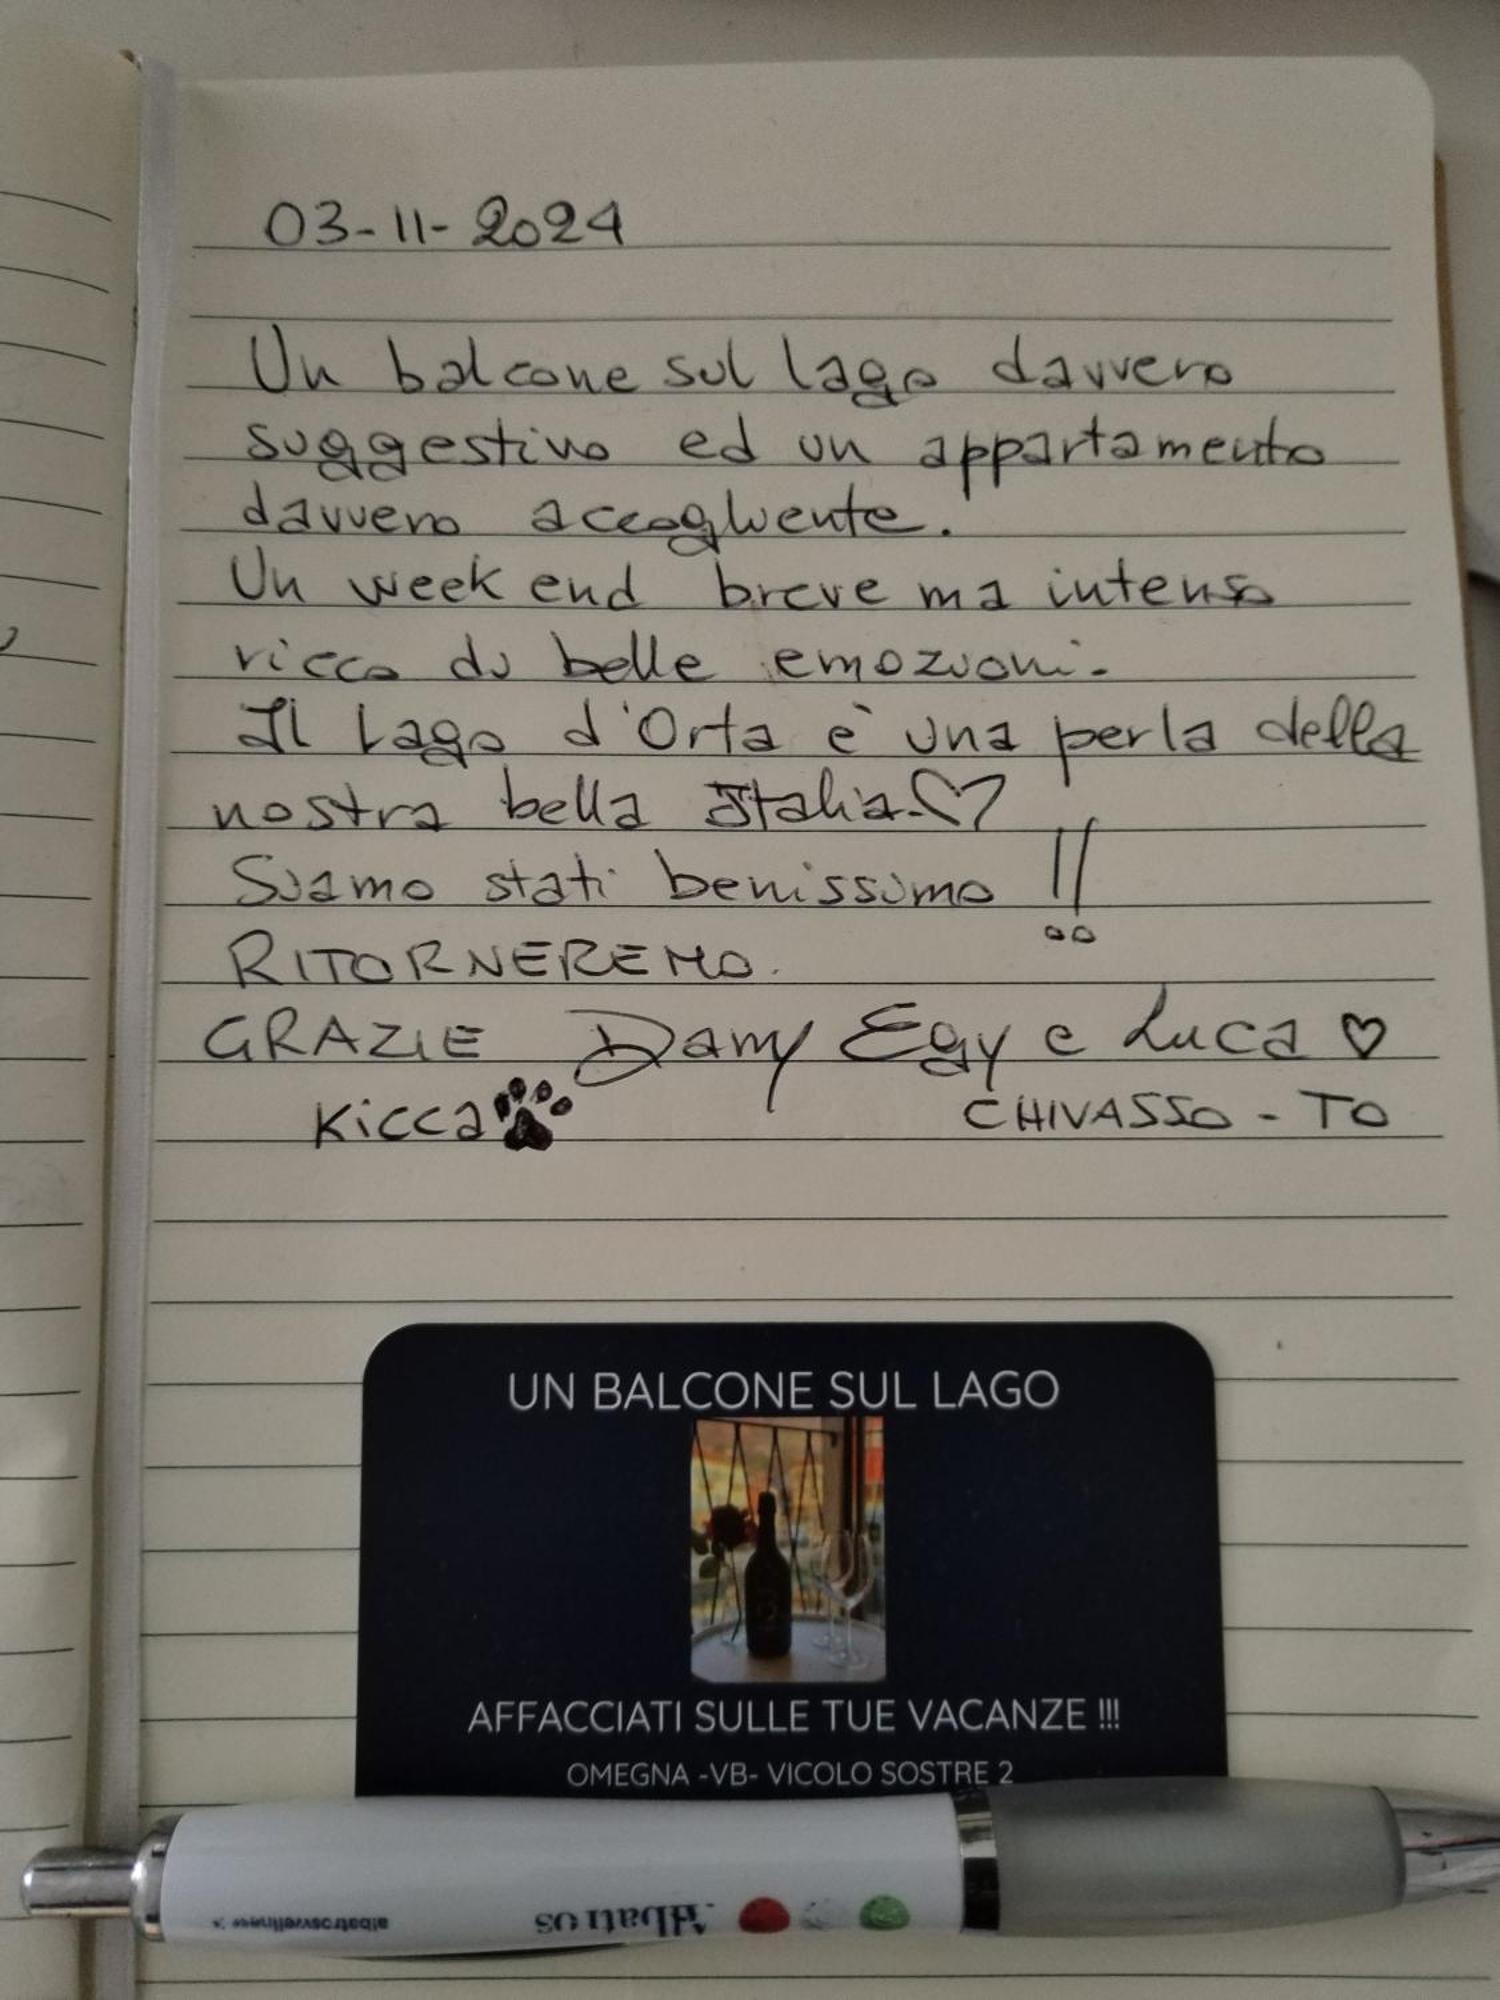 03-11-2024
Un balcone sul lago davvero
suggestivo ed un appartamento
davvero accogliente.
Un week end breve ma intenso
ricco di belle emozioni.
Il Lago d'Orta è una perla della
nostra bella Italia.♡
Siamo stati benissimo !!
RITORNEREMO.
GRAZIE Damy Egy e Luca ♡
Kicca CHIVASSO - TO
UN BALCONE SUL LAGO
AFFACCIATI SULLE TUE VACANZE !!!
OMEGNA -VB- VICOLO SOSTRE 2
Albatros